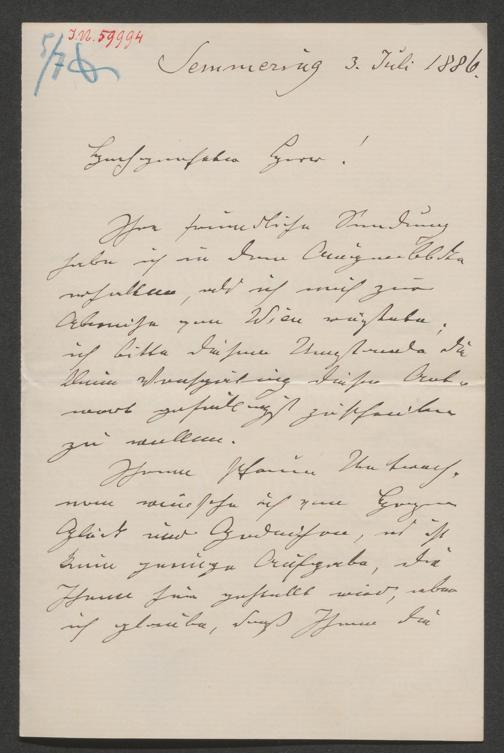 I.N. 59994
5/7 86
Semmering 3. Juli 1886.
Hochgeehrter Herr!
Ihre freundliche Sendung
habe ich in dem Augenblicke
erhalten, als ich mich zur
Abreise von Wien rüstete;
ich bitte diesem Umstande die
kleine Verspätung dieser Ant-
wort gefälligst zuschreiben
zu wollen.
Ihrem schönen Unterneh-
men wünsche ich von Herzen
Glück und Gedeihen, es ist
keine geringe Aufgabe, die
Ihnen hier gestellt wird, aber
ich glaube, daß Ihnen die